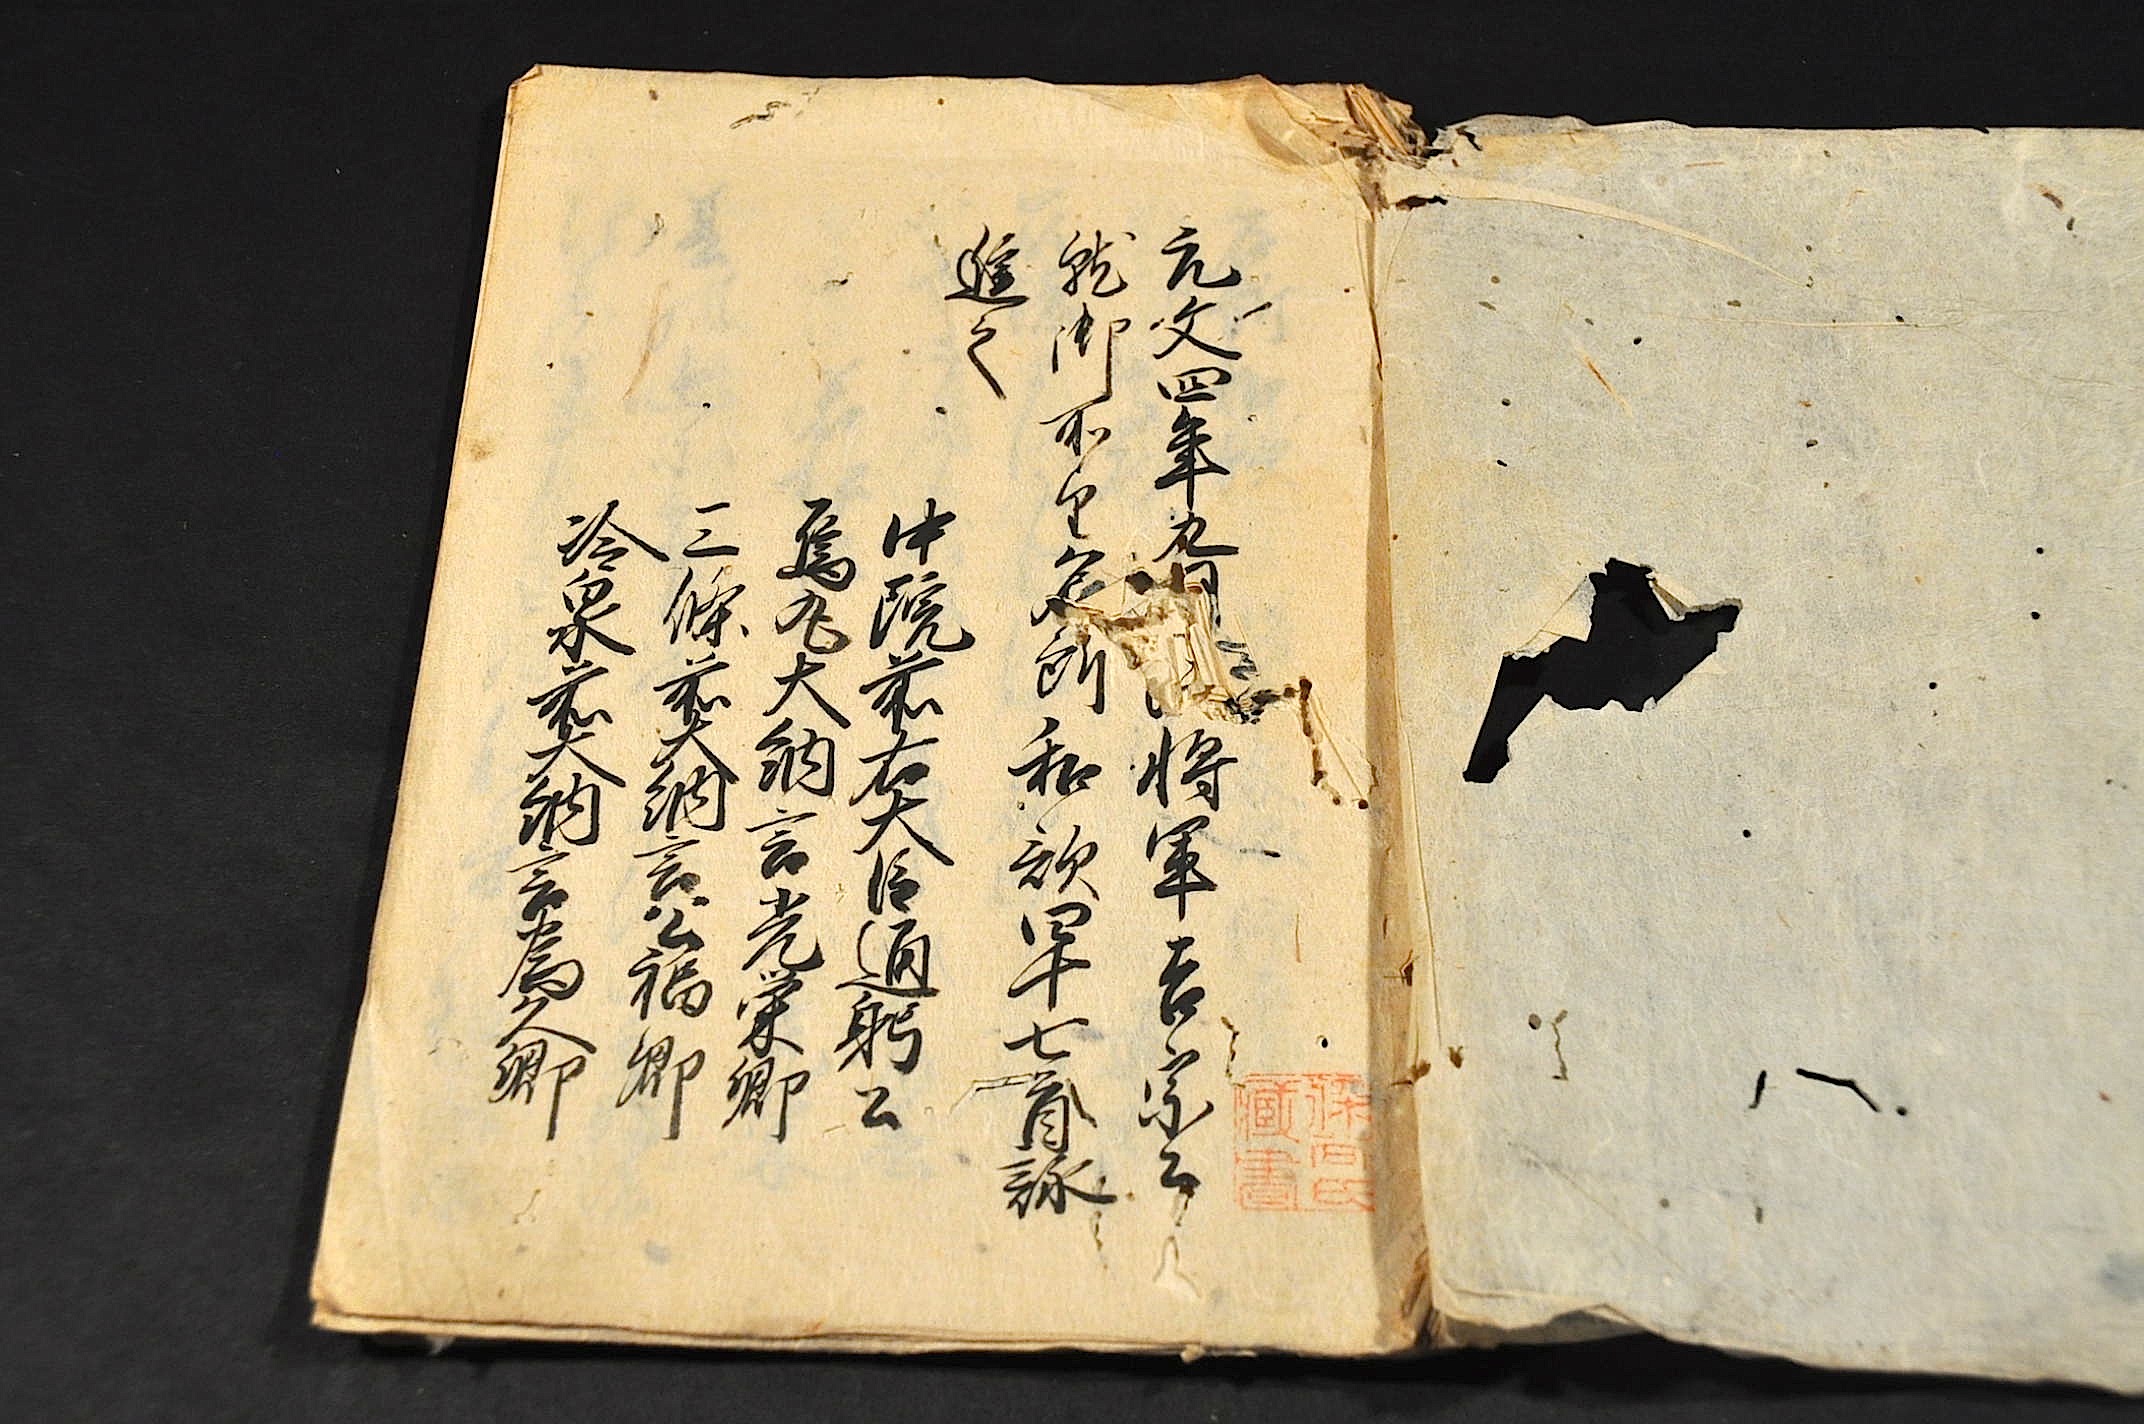 元文四年九月 将軍吉宗公
就御所望名所和歌四十七首詠
進之
中院前右大臣通躬公
烏丸大納言光栄卿
三條前大納言公福卿
冷泉前大納言為久卿
蔵書